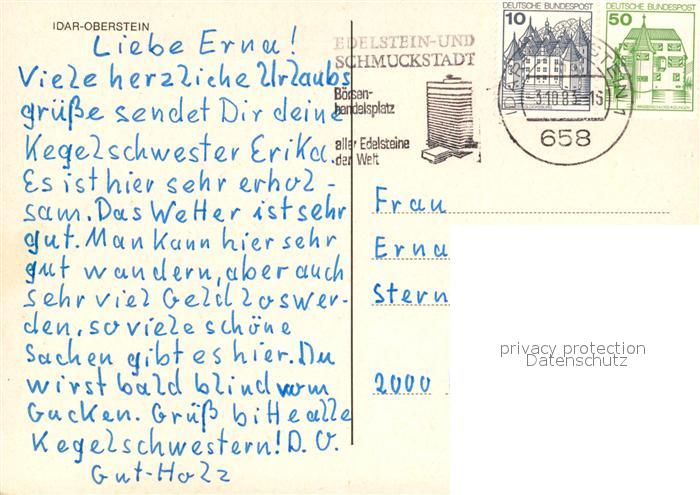 IDAR-OBERSTEIN
Liebe Erna!
Viele herzliche Urlaubs
grüße sendet Dir deine
Kegelschwester Erika.
Es ist hier sehr erhol-
sam. Das Wetter ist sehr
gut. Man kann hier sehr
gut wandern, aber auch
sehr viel Geld loswer-
den, so viele schöne
Sachen gibt es hier. Du
wirst bald blind vom
Gucken. Grüß bitte alle
Kegelschwestern! D. O.
Gut-Holz
EDELSTEIN-UND
SCHMUCKSTADT
Börsen-
handelsplatz
aller Edelsteine
der Welt
DEUTSCHE BUNDESPOST
10
DEUTSCHE BUNDESPOST
50
658
Frau
Erna
Stern
2000
privacy protection
Datenschutz